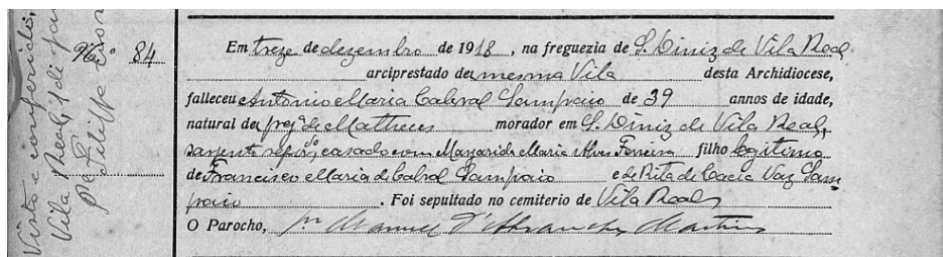 Visto e conferido,
Vila Real, 31 de
P.e Filippe
Nº 84
Em treze de dezembro de 1918, na freguezia de S. Diniz de Vila Real,
arciprestado da mesma Vila desta Archidiocese,
falleceu Antonio Maria Cabral Sampaio de 39 annos de idade,
natural da freg.ª de Matheus morador em S. Diniz de Vila Real,
sargento refor.do, casado com Margarida Maria Alves Ferreira filho legitimo
de Francisco Maria de Cabral Sampaio e de Rita de Cacia Vaz Sam
paio. Foi sepultado no cemiterio de Vila Real
O Parocho, P.e Manuel d'Abranches Martins